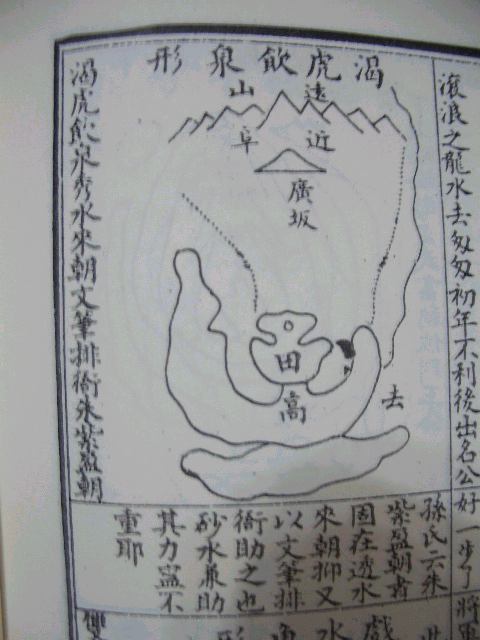 滾浪之龍水去匆匆初年不利後出名公好一步了將軍
渴虎飲泉形
遠山
近阜
廣坂
田
高
去
渴虎飲泉秀水來朝文筆排衙朱紫盈朝
孫氏云朱
紫盈朝者
固在透水
來朝抑又
以文筆排
衙助之也
砂水兼助
其力寍不
重耶